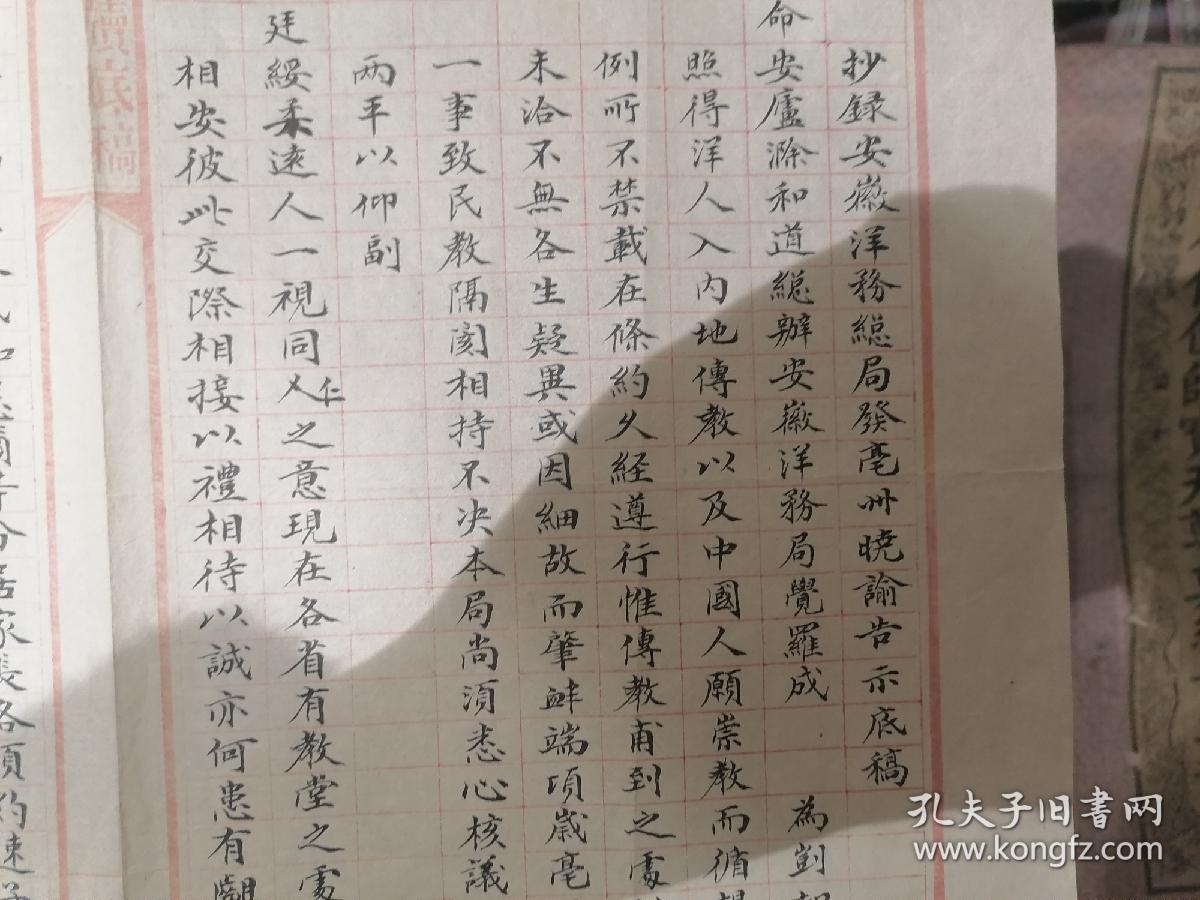 抄録安徽洋務総局發亳州曉諭告示底稿
命安廬滁和道總辦安徽洋務局覺羅成 為剴
照得洋人入內地傳教以及中國人願崇教而循
例所不禁載在條約久経遵行惟傳教甫到之處
未洽不無各生疑異或因細故而肇衅端項嵗亳
一事致民教隔閡相持不決本局尚須悉心核議
兩平以仰副
廷綏柔遠人一視同仁之意現在各省有教堂之處
相安彼此交際相接以禮相待以誠亦何患有
分居家長各項約束
孔夫子旧书网
www.kongfz.com